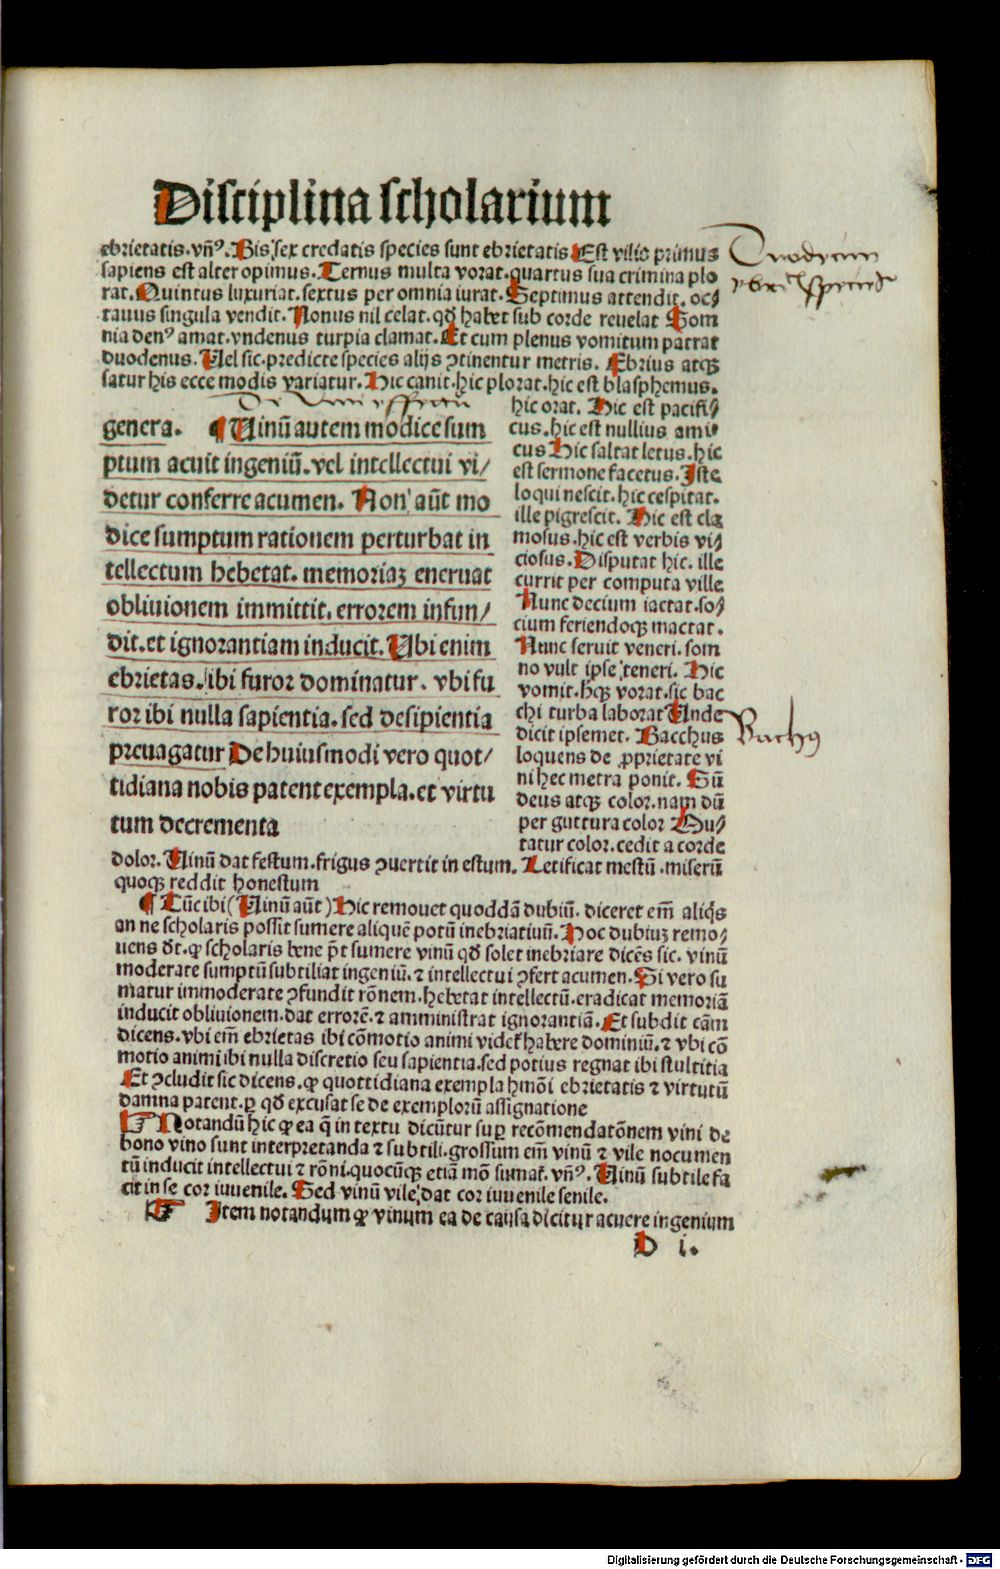 Disciplina scholarium
ebrietatis. vn̄⁹. Bis sex credatis species sunt ebrietatis Est vilis primus
sapiens est alter opimus. Ternus multa vorat. quartus sua crimina plo
rat. Quintus luxuriat. sextus per omnia iurat. Septimus attendit. oc/
tauus singula vendit. Nonus nil celat. qđ habet sub corde reuelat Som
nia den⁹ amat. vndenus turpia clamat. Et cum plenus vomitum patrat
duodenus. Uel sic. predicte species alijs ꝯtinentur metris. Ebrius atqꝫ
satur his ecce modis variatur. Hic canit. hic plorat. hic est blasphemus.
Duodecim
ybrie species
De vini effectu
genera. ¶ Uinū autem modice sum
ptum acuit ingeniū. vel intellectui vi/
detur conferre acumen. Non aūt mo
dice sumptum rationem perturbat in
tellectum hebetat. memoriaꝫ eneruat
obliuionem immittit. errorem infun/
dit. et ignorantiam inducit. Ubi enim
ebrietas. ibi furor dominatur. vbi fu
ror ibi nulla sapientia. sed desipientia
preuagatur De huiusmodi vero quot/
tidiana nobis patent exempla. et virtu
tum decrementa
hic orat. Hic est pacifi/
cus. hic est nullius ami
cus Hic saltat letus. hic
est sermone facetus. Iste
loqui nescit. hic cespitat.
ille pigrescit. Hic est cla
mosus. hic est verbis vi/
ciosus. Disputat hic. ille
currit per computa ville
Nunc decium iactat. so/
cium feriendoqꝫ mactat.
Nunc seruit veneri. som
no vult ipse teneri. Hic
vomit. hicqꝫ vorat. sic bac
chi turba laborat Unde
dicit ipsemet. Bacchus
loquens de ꝓprietate vi
ni hec metra ponit. Sū
deus atqꝫ color. nam dū
per guttura color Gu/
tatur color. cedit a corde
Bachus
dolor. Uinū dat festum. frigus ꝯuertit in estum. Letificat mestū. miserū
quoqꝫ reddit honestum
¶ Tūc ibi (Uinū aūt) Hic remouet quoddā dubiū. diceret em̄ aliqs
an ne scholaris possit sumere aliquē potū inebriatiuū. Hoc dubiuꝫ remo/
uens dt. ꝙ scholaris bene pt sumere vinū qđ solet inebriare dicēs sic. vinū
moderate sumptū subtiliat ingeniū. ⁊ intellectui ꝯfert acumen. Si vero su
matur immoderate ꝯfundit rōnem. hebetat intellectū. eradicat memoriā
inducit obliuionem. dat errorē. ⁊ amministrat ignorantiā. Et subdit cām
dicens. vbi em̄ ebrietas ibi cōmotio animi videt habere dominiū. ⁊ vbi cō
motio animi ibi nulla discretio seu sapientia. sed potius regnat ibi stultitia
Et ꝯcludit sic dicens. ꝙ quottidiana exempla hmōi ebrietatis ⁊ virtutū
damna patent. ꝑ qđ excusat se de exemplorū assignatione
☞ Notandū hic ꝙ ea q̄ in textu dicūtur suꝑ recōmendatōnem vini de
bono vino sunt interpretanda ⁊ subtili. grossum em̄ vinū ⁊ vile nocumen
tū inducit intellectui ⁊ rōni. quocūqꝫ etiā mō sumat. vn̄⁹. Uinū subtile fa
cit in se cor iuuenile. Sed vinū vile. dat cor iuuenile senile.
☞ Item notandum ꝙ vinum ea de causa dicitur acuere ingenium
D i.
Digitalisierung gefördert durch die Deutsche Forschungsgemeinschaft - DFG